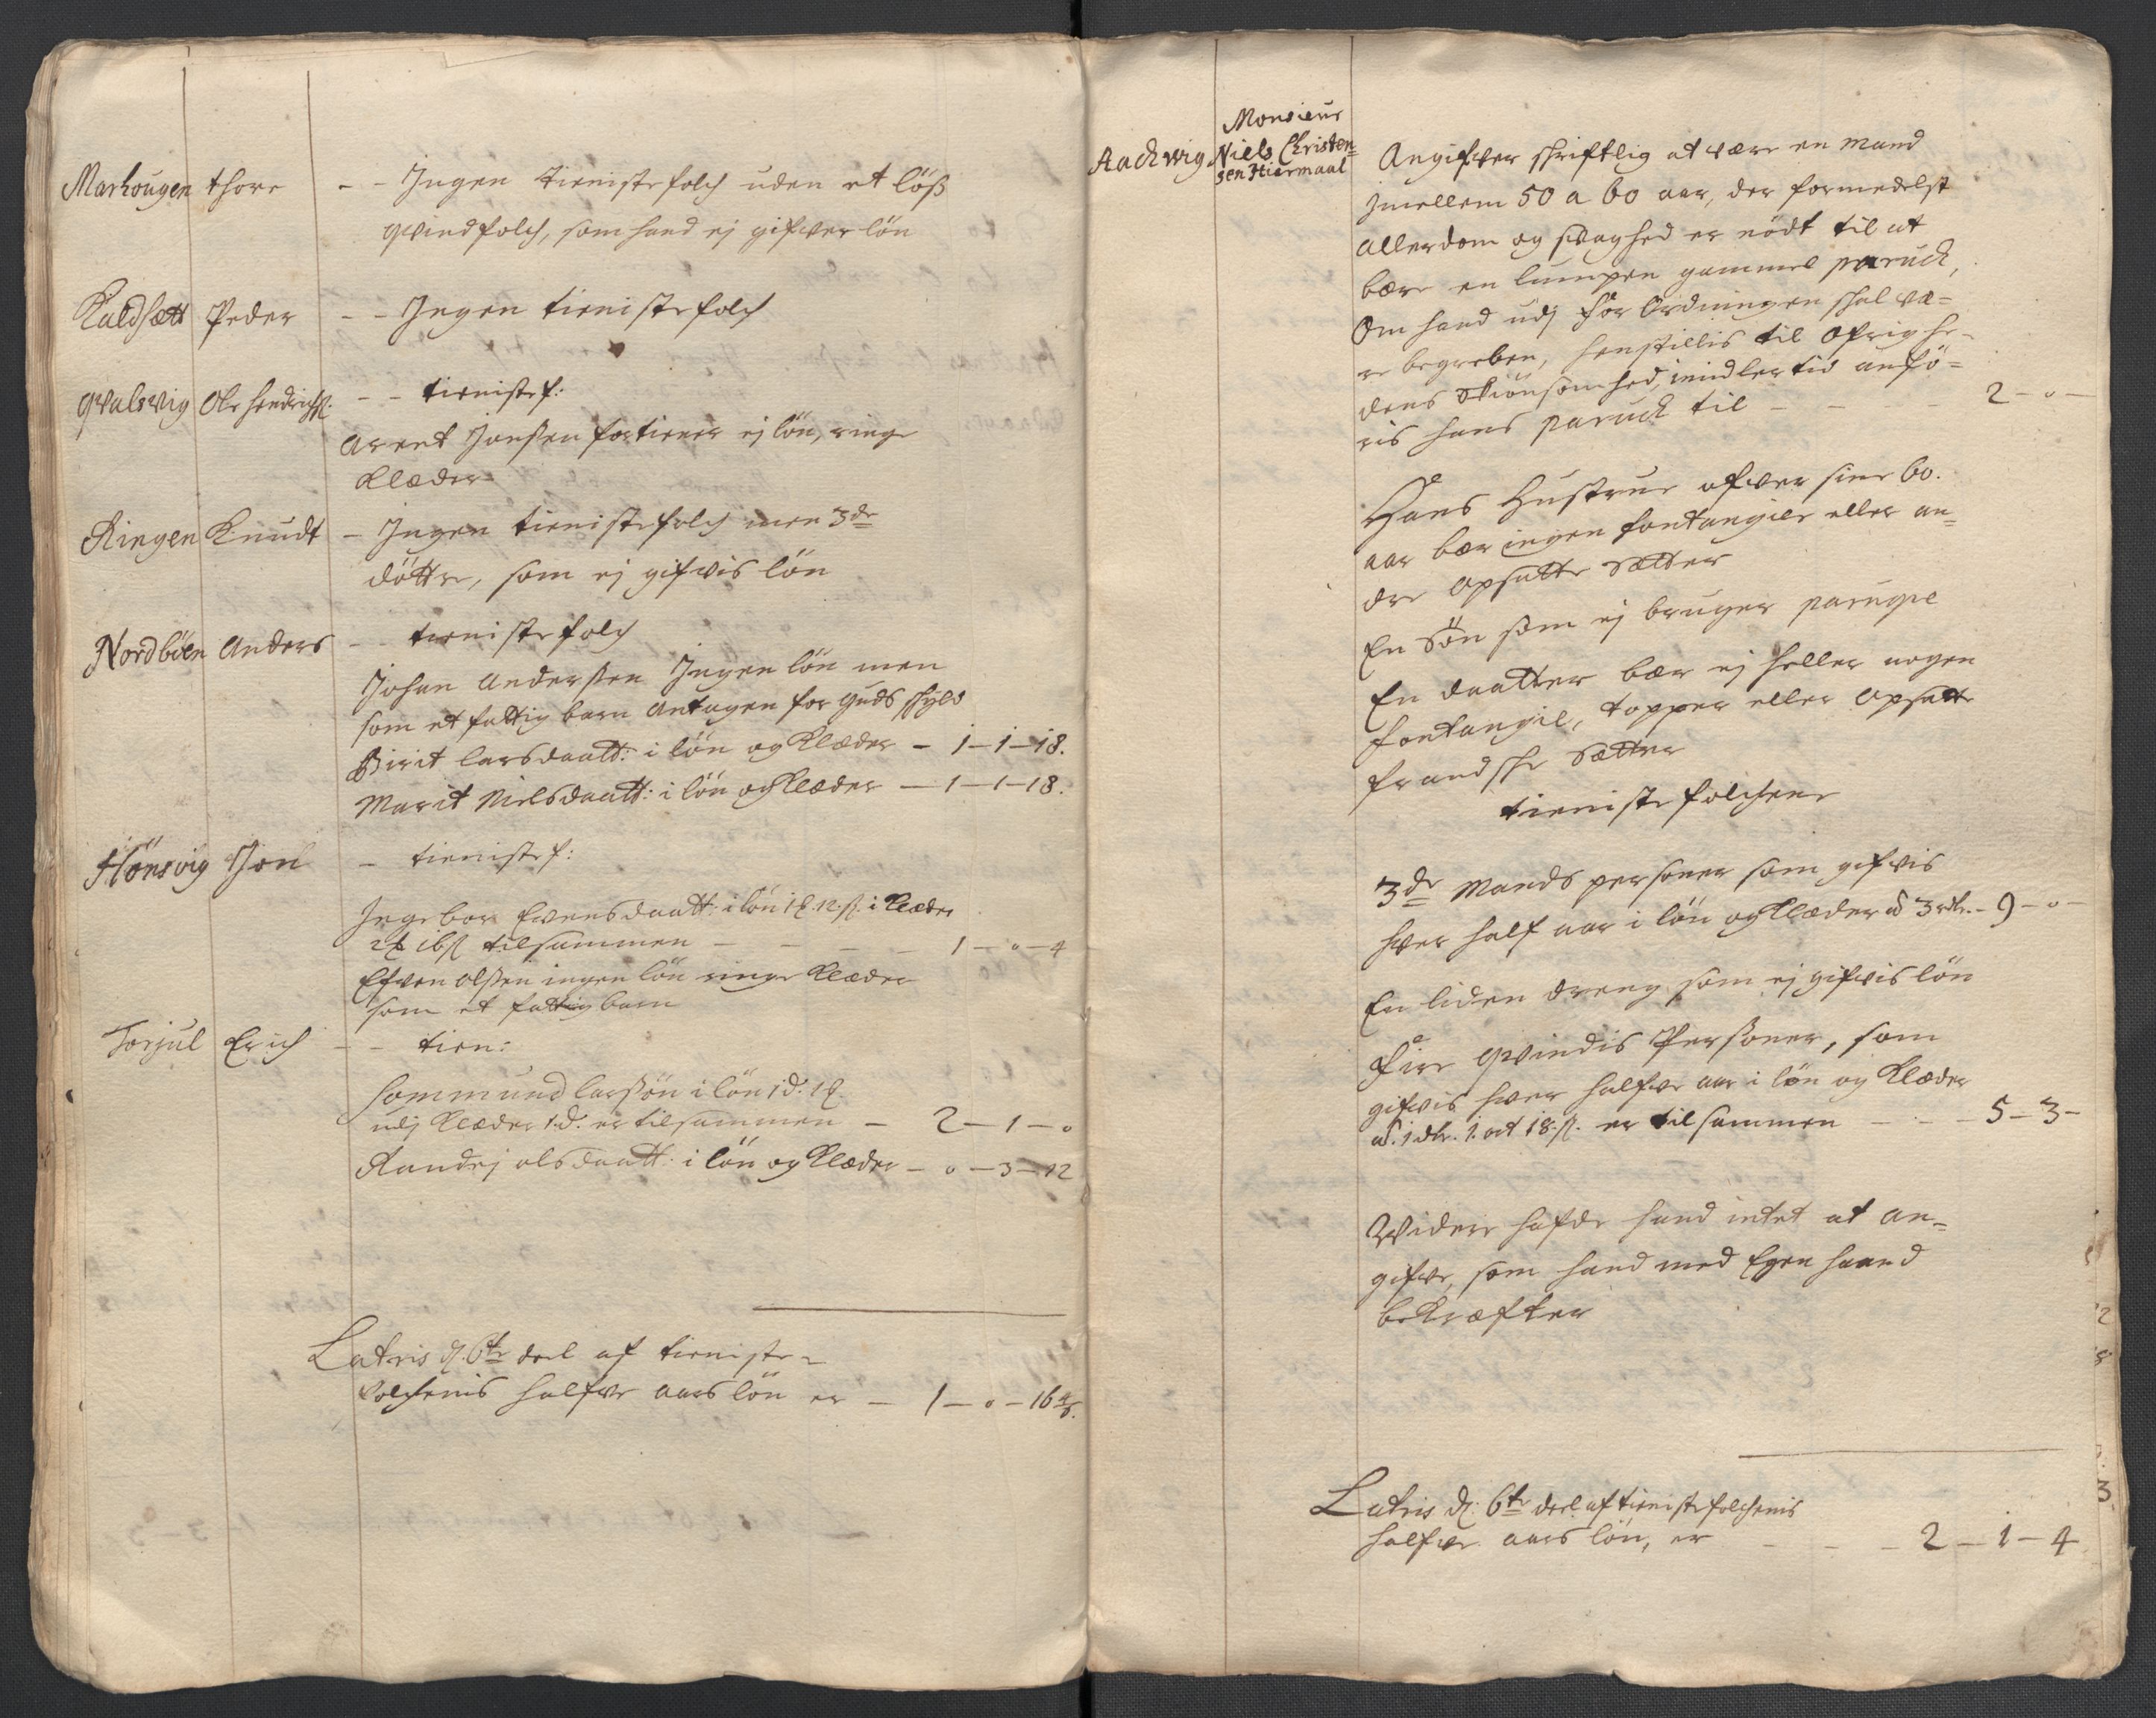 Marhougen thore - - Ingen tienistefolch uden et löß
qvindfolch, som hand ej gifver lön
Kuldsætt Peder - - Ingen tienistefolch
qvalsvig Ole Hendrichß: - - tienistef:
Arent Jonßen fortiener ej lön, ringe
Klæder
Ringen Knudt - Ingen tienistefolch men 3de
döttre, som ej gifvis lön
Nordböen Anders - - tienistefolch
Johan Anderßen Ingen lön men
som et fattig barn Antagen for Guds schyld
Birit larsdaatt: i lön og Klæder - 1-1-18.
Marit Nielsdaatt: i lön og Klæder - 1-1-18.
Hönsvig Jon - tienistef:
Ingebor Evensdaatt: i lön 12.ß. i Klæder
16ß tilsammen - - - - 1-0-4
Efven olßen ingen lön ringe Klæder
som et fattig barn
Torjul Erich - - tien:
Sommund larßön i lön 1d.
udj Klæder 1.d. er tilsammen - 2-1-0
Randej olsdaatt: i lön og Klæder - 0-3-12
Latris d. 6te deel af tieniste-
folchenis halfve aars lön er - 1-0-16 4/6.
Monsieur
Aachvig Niels Christen=
sen Hiermaal
Angifver schriftlig at være en mand
imellem 50 a 60 aar, der formedelst
allerdom og svaghed er nödt til at
bære en lumpen gammel paruch,
Om hand udj forordningen schal væ=
re begreben, henstillis til öfrighe-
dens skiönsomhed, imidlertid anfö=
ris hans paruch til - - - - 2-0-
Hans Hustrue ofver sine 60.
aar bær ingen fontangier eller an=
dre opsatte Sætter
En Sön som ej bruger paruqve
En daatter bær ej heller nogen
fontangie, topper eller opsatte
frandsche Sætter
tienistefolchene
3de Mands personer som gifvis
hver half aar i lön og Klæder ad 3 rdr. - 9-0-
En liden dreng som ej gifvis lön
Fire qvindis Persooner, som
gifvis hver halfve aar i lön og Klæder
ad. 1 dlr. 1. ort 18. ß. er tilsammen - - - 5-3-
Widere hafde hand intet at an=
gifve, som hand med Egen haand
bekræfter
Latris d. 6te deel af tienistefolchenis
halfve aars lön, er - - - 2-1-4